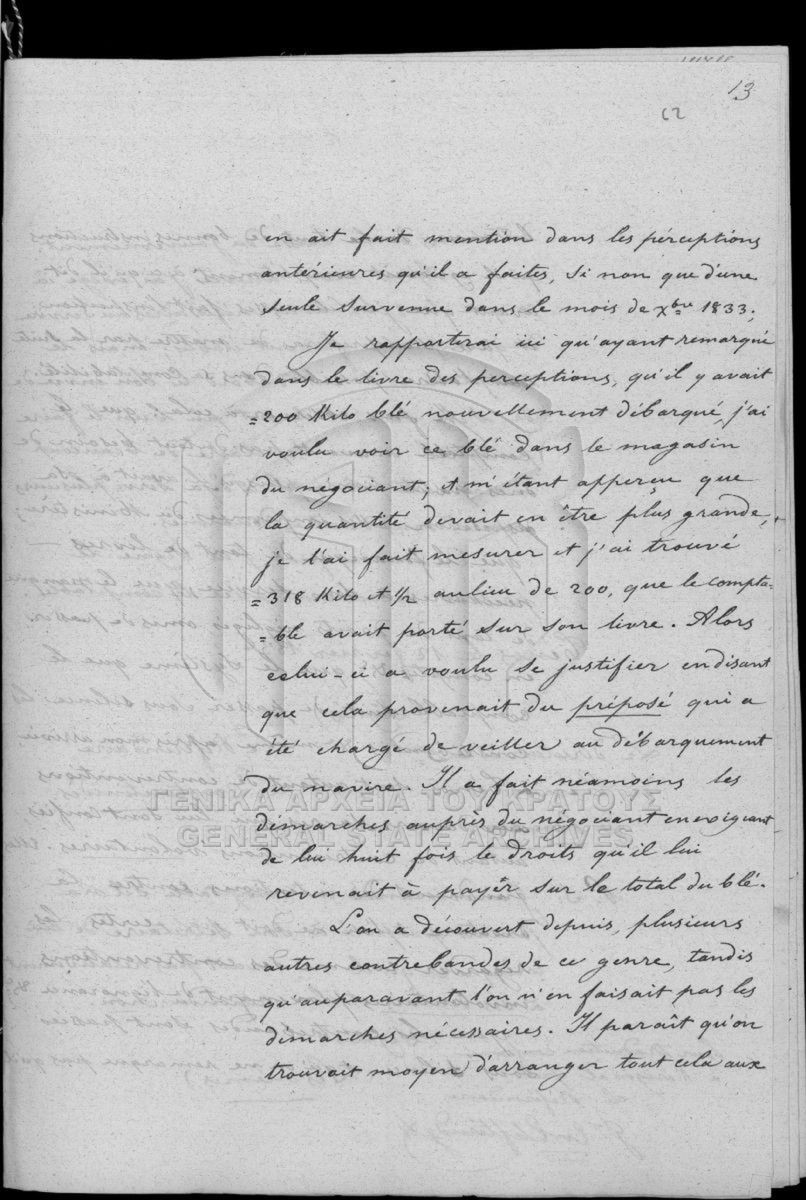 13
62
en ait fait mention dans les pérceptions
antérieures qu'il a faites, si non que d'une
seule survenue dans le mois de Xbre 1833;
Je rapporterai ici qu'ayant remarqué
dans le livre des perceptions, qu'il y avait
=200 Kilo blé nouvellement débarqué, j'ai
voulu voir ce blé dans le magasin
du négociant; et m'étant apperçu que
la quantité devait en être plus grande,
je l'ai fait mesurer et j'ai trouvé
=318 Kilo et 1/2 aulieu de 200, que le compta-
=ble avait porté sur son livre. Alors
celui-ci a voulu se justifier en disant
que cela provenait du préposé qui a
été chargé de veiller au débarquement
du navire. Il a fait néamoins les
ΓΕΝΙΚΑ ΑΡΧΕΙΑ ΤΟΥ ΚΡΑΤΟΥΣ
démarches auprès du négociant en exigeant
GENERAL STATE ARCHIVES
de lui huit fois le droits qu'il lui
revenait à payér sur le total du blé.
L'on a découvert depuis, plusieurs
autres contrebandes de ce genre, tandis
qu'auparavant l'on n'en faisait pas les
démarches nécessaires. Il paraît qu'on
trouvait moyen d'arranger tout cela aux